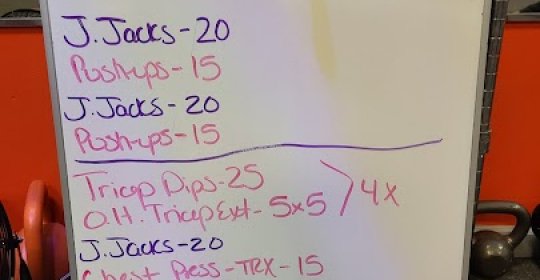 J. Jacks - 20
Push-ups - 15
J. Jacks - 20
Push-ups - 15
Tricep Dips - 25
O.H. Tricep Ext - 5x5 > 4x
J. Jacks - 20
Chest Press - TRX - 15